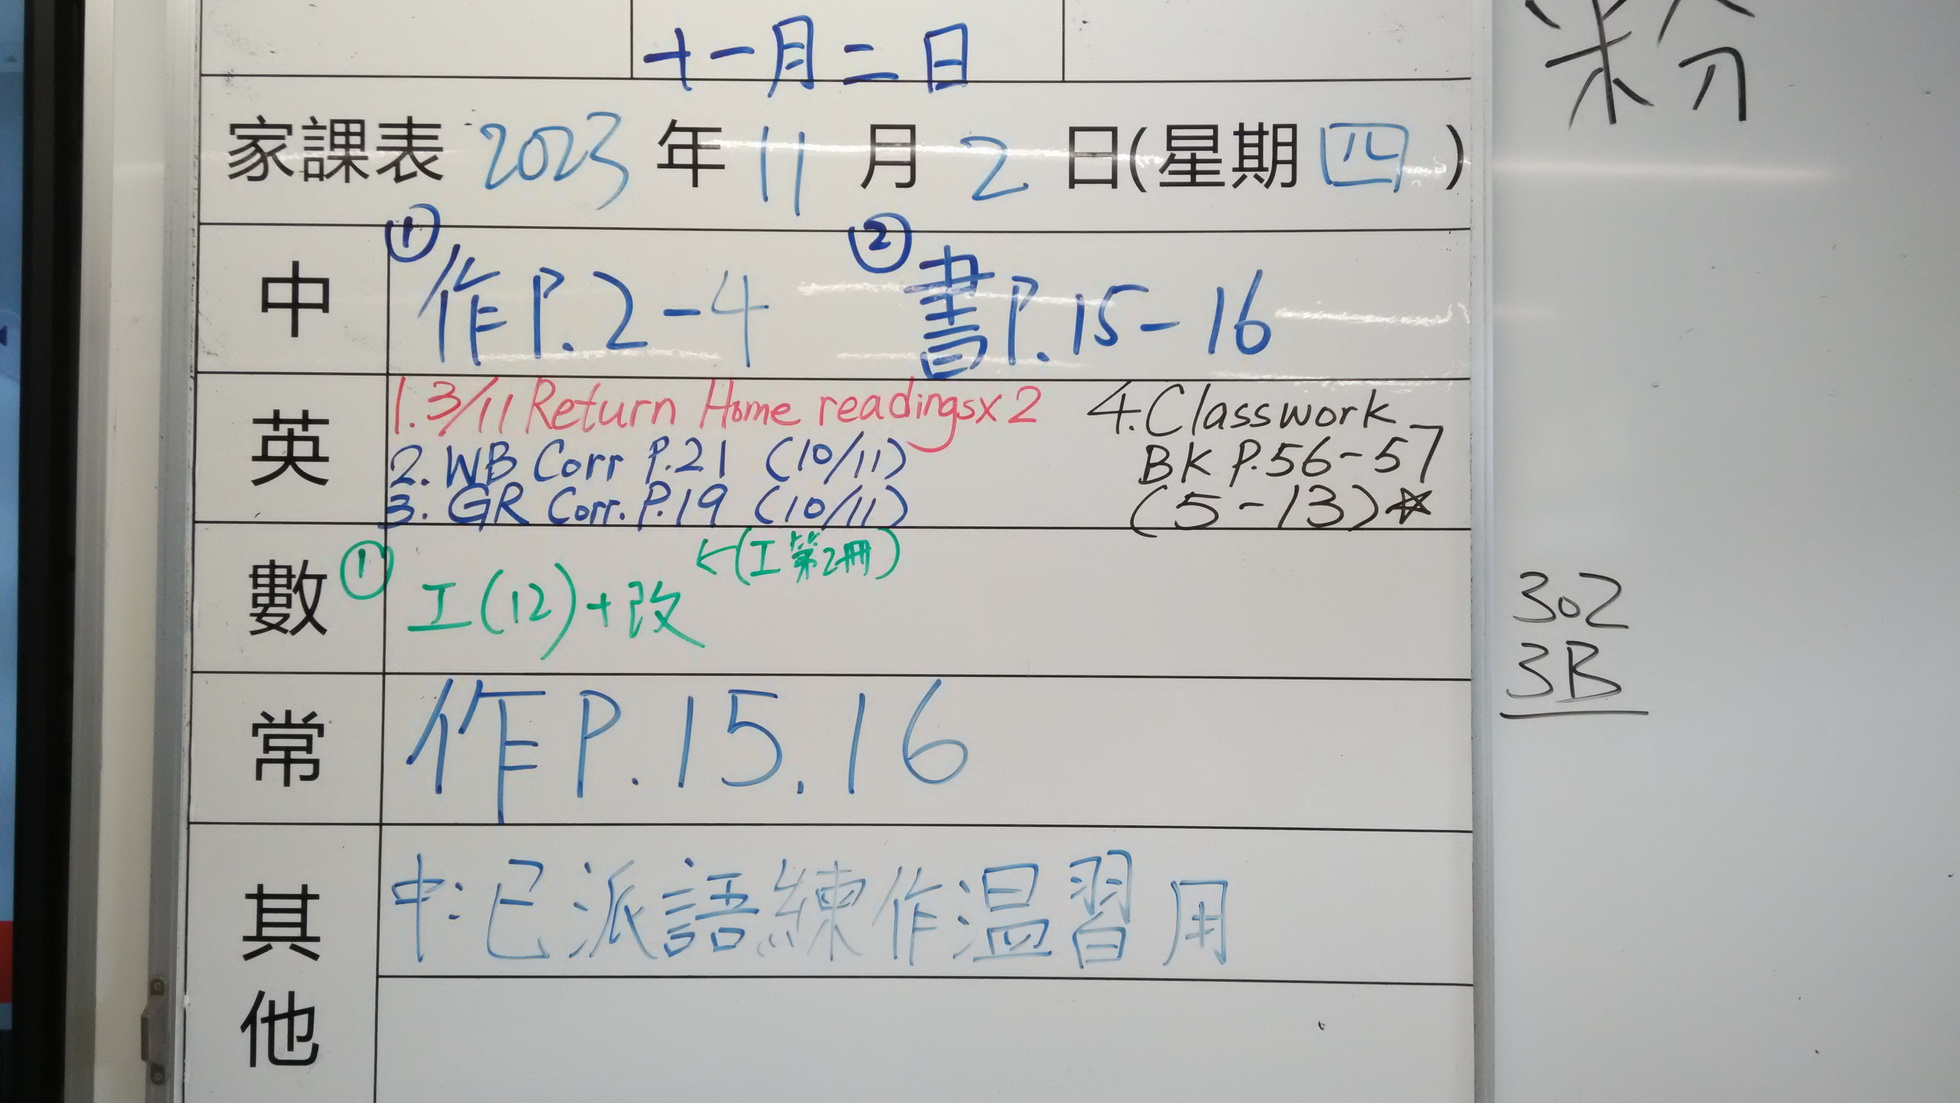 十一月二日
粉
家課表 2023 年 11 月 2 日(星期四)
中
① 作P.2-4 ② 書P.15-16
英
1. 3/11 Return Home readings x 2
2. WB Corr P.21 (10/11)
3. GR Corr. P.19 (10/11)
4. Classwork
BK P.56-57
(5-13)☆
數
① 工(12)+改 ←(工第2冊)
302
3B
常
作P.15,16
其他
中:已派語練作温習用